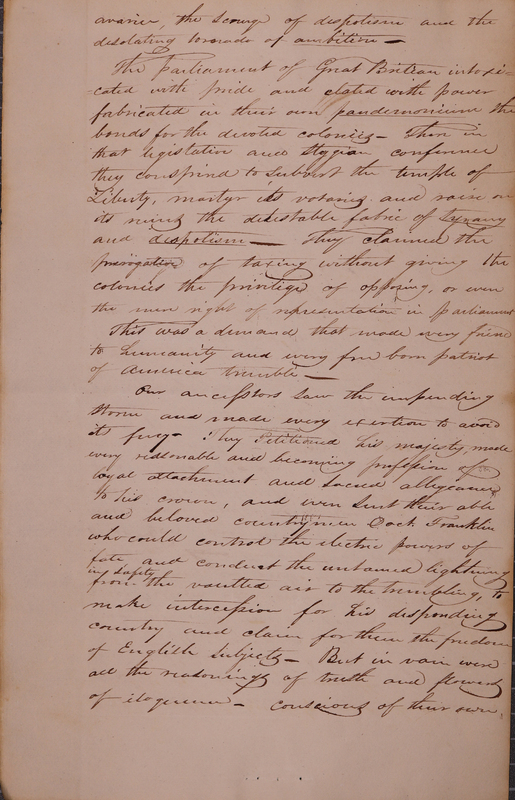 avarice, the scourge of dispotism and the
desolating tornado of ambition —
The Parliament of Great Britian intoxi-
-cated with pride and elated with power
fabricated in their own pandemonium the
bonds for the devoted colonies — Then in
that legislative and Stygian conference
they conspired to subvert the temple of
Liberty, martyr its votaries and raise on
its ruins the detestable fabric of tyranny
and dispotism — They claimed the
prerogative of taxing without giving the
colonies the privilige of opposing, or even
the mere right of representation in parliament
This was a demand that made every friend
to humanity and every free born patriot
of America tremble —
Our ancesstors saw the impending
storm and made every exertion to avoid
its fury — They Petitioned his majesty, made
every reasonable and becoming profession of
loyal attachment and sacred allegiance
to his crown, and even sent their able
and beloved countrymen Doct Franklin
who could control the electric powers of
fate and conduct the untamed lightning
in safety
from the vaulted air to the trembling, to
make intercession for his desponding
country and claim for them the freedom
of English Subjects — But in vain were
all the reasonings of truth and flowers
of eloquence — conscious of their own